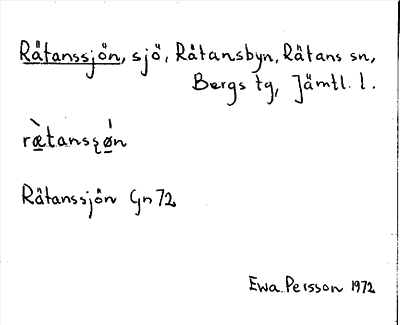 Råtanssjön, sjö, Råtansbyn, Råtans sn,
Bergs tg, Jämtl. l.
ræ̀tansʂø̀n
Råtanssjön Gn 72
Ewa Persson 1972